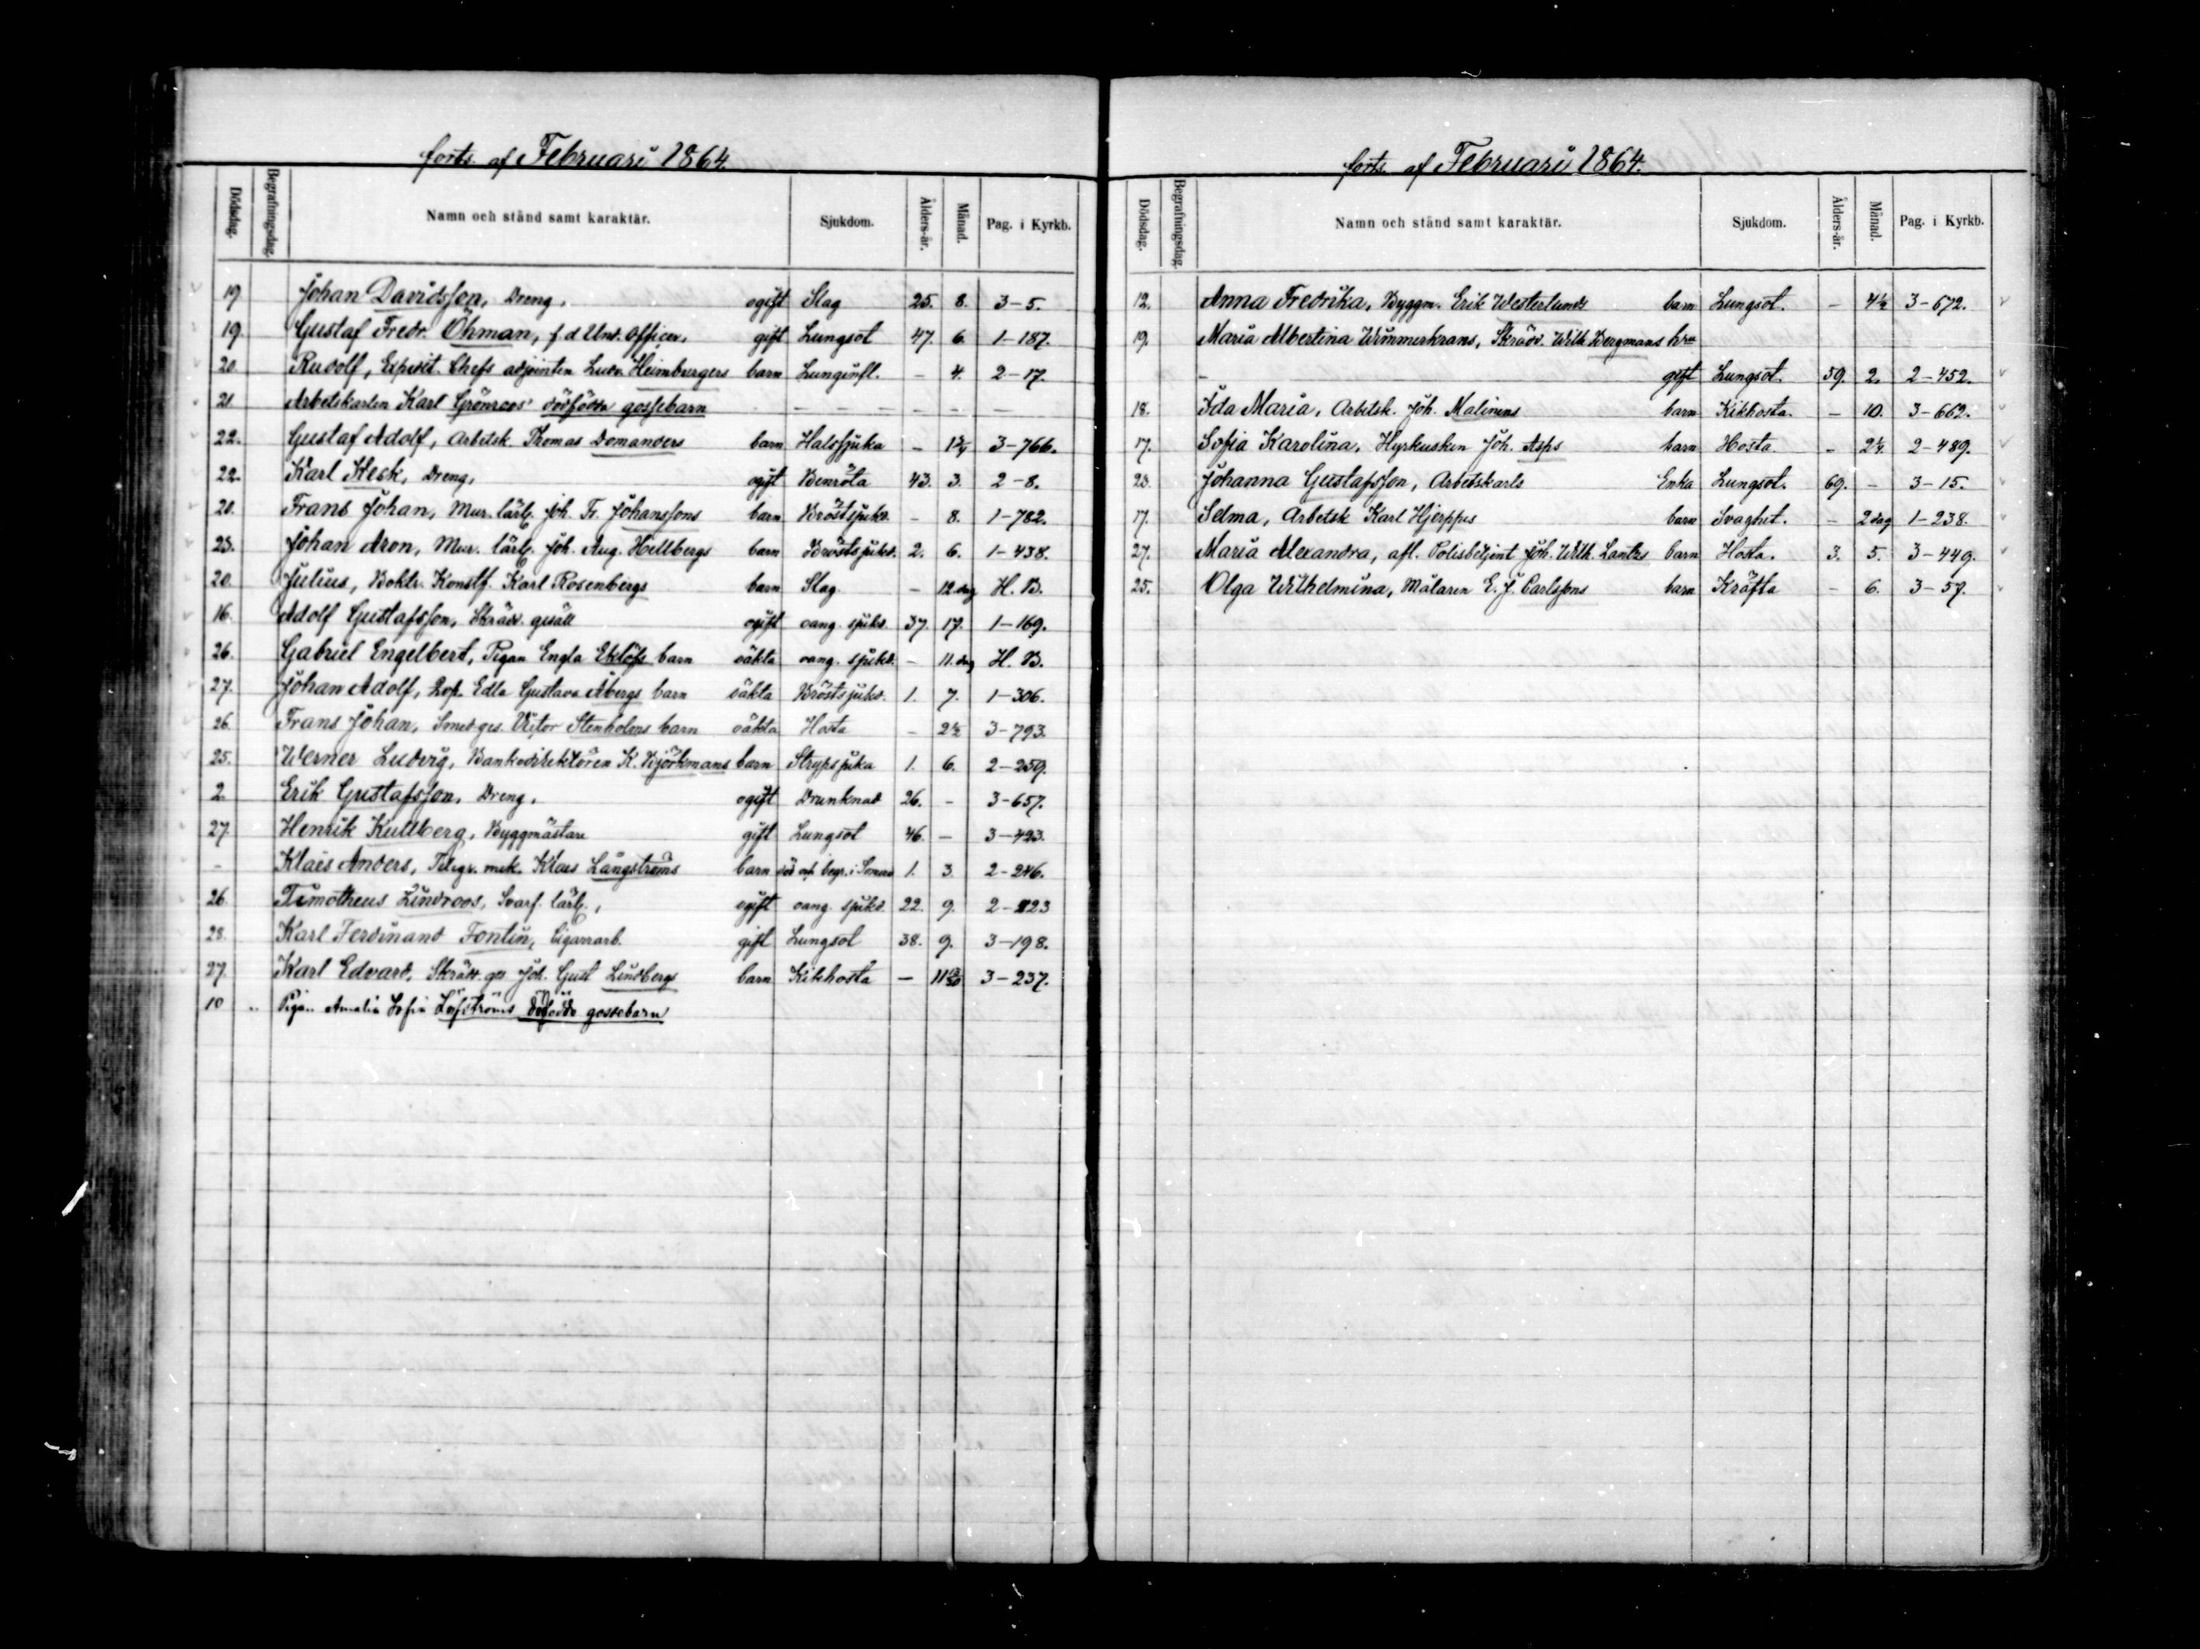 forts. af Februari 1864.
Dödsdag. Begrafningsdag. Namn och stånd samt karaktär. Sjukdom. Ålders-år. Månad. Pag. i Kyrkb.
19 Johan Davidsson, Dreng, ogift Slag 25. 8. 3-5.
19. Gustaf Fredr. Öhman, f.d. Und. officer, gift Lungsot 47. 6. 1-187.
20. Rudolf, Exped. Chefs adjointen Ludv. Heimburgers barn Lunginfl. - 4. 2-17.
21. Arbetskarlen Karl Grönroos' dödfödda gossebarn - - - - - -
22. Gustaf Adolf, Arbetsk. Thomas Domanders barn Halssjuka - 3-766.
22. Karl Kesk, Dreng, ogift Benröta 43. 3. 2-8.
20. Frans Johan, Mur. lärl. Joh. Fr. Johanssons barn Bröstsjukd. - 8. 1-782.
23. Johan Aron, Mur. lärl. Joh. Aug. Hellbergs barn Bröstsjukd. 2. 6. 1-438.
20. Julius, Boktr. Konstf. Karl Rosenbergs barn Slag - 12.dag H. B.
16. Adolf Gustafsson, Skrädd. gesäll ogift oang. sjukd. 37. 17. 1-169.
26. Gabriel Engelbert, Pigan Engla Eklöfs barn oäkta oang. sjukd. - 11.dag H. B.
27. Johan Adolf, Edla Gustava Åbergs barn oäkta Bröstsjukd. 1. 7. 1-306.
26. Frans Johan, Smedges. Viktor Stenholms barn oäkta Hosta - 2½ 3-793.
25. Werner Ludvig, Bankodirektören K. Björkmans barn Strypsjuka 1. 6. 2-259.
2. Erik Gustafsson, Dreng, ogift Drunknad 26. - 3-657.
27. Henrik Kullberg, Byggmästare gift Lungsot 46. - 3-423.
- Klaës Anders, Telegr. mek. Klaes Långströms barn död och begr. i Somero 1. 3. 2-246.
26. Timotheus Lindroos, Svarf. lärl., ogift oang. sjukd. 22. 9. 2-223
28. Karl Ferdinand Fontin, Cigarrarb. gift Lungsot 38. 9. 3-198.
27. Karl Edvard, Skrädd. ges. Joh. Gust Lindbergs barn Kikhosta - 3-237.
10 .. Pigan Amalia Sofia Löfströms dödfödda gossebarn
forts. af Februari 1864.
Dödsdag. Begrafningsdag. Namn och stånd samt karaktär. Sjukdom. Ålders-år. Månad. Pag. i Kyrkb.
12. Anna Fredrika, Byggm. Erik Westerlunds barn Lungsot. - 4½ 3-672.
19. Maria Albertina Wimmerkrans, Skrädd. Wilh. Bergmans hru
- gift Lungsot. 59. 2. 2-452.
18. Ida Maria, Arbetsk. Joh. Malinens barn Kikhosta. - 10. 3-662.
17. Sofia Karolina, Hyrkusken Joh. Asps barn Hosta - 2¼. 2-489.
23. Johanna Gustafsson, Arbetskarls Enka Lungsot. 69. - 3-15.
17. Selma, Arbetsk Karl Hjerppes barn Svaghet. - 2 dag 1-238.
27. Maria Alexandra, afl. Polisbetjent Joh. Wilh. Lantzs barn Hosta. 3. 5. 3-449.
25. Olga Wilhelmina, Målaren E. J. Carlssons barn Kräfta - 6. 3-57.